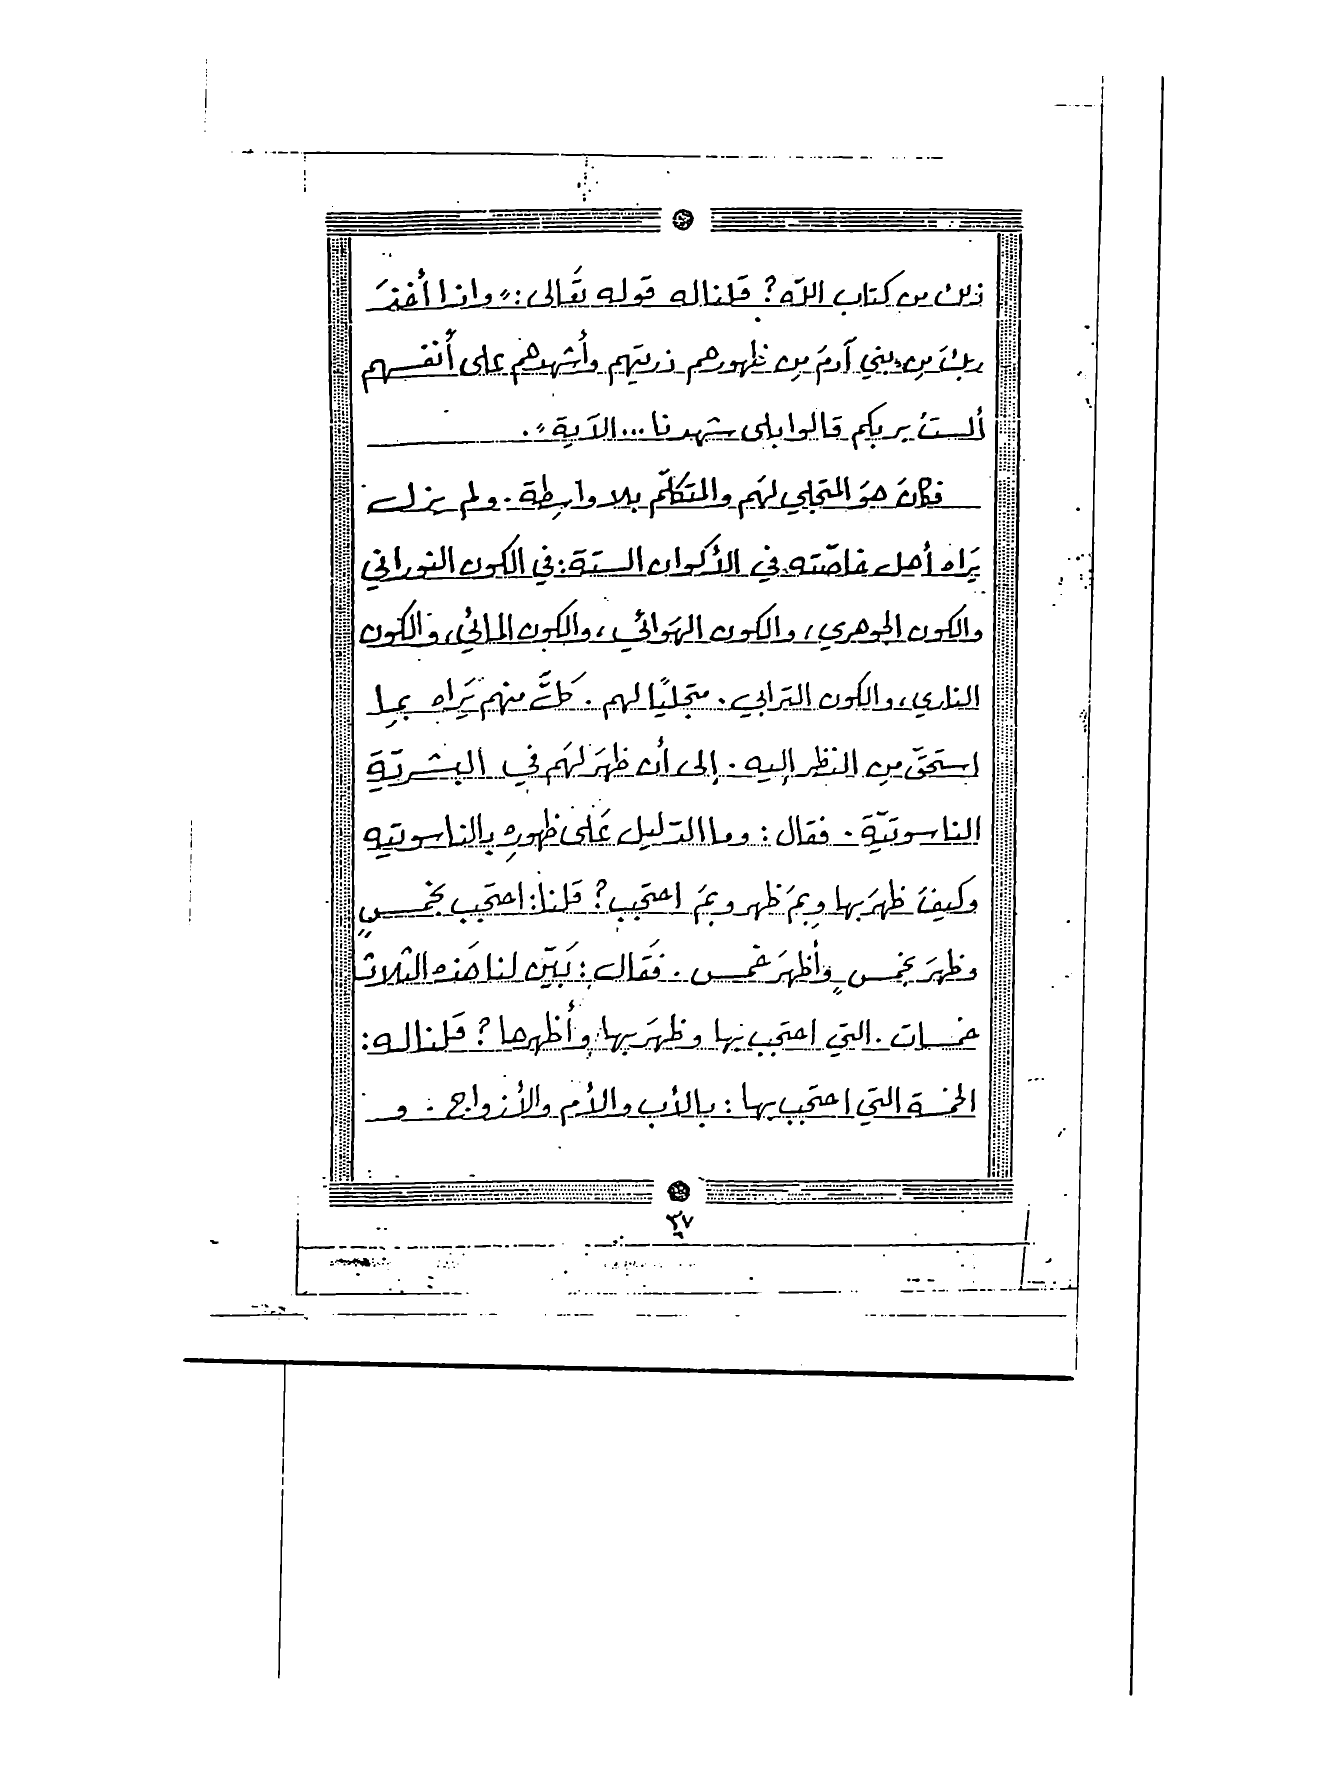 ذلك من كتاب الله؟ قلنا له قوله تَعَالى: "وإذا أخذَ
ربكَ مِن بني آدمَ مِن ظهورهم ذريتهم وأشهدهم على أنفسهم
ألستُ بربكم قالوا بلى شهدنا... الآية".
فكانَ هوَ المتجلي لهَم والمتكلّم بلا واسِطة. ولم يزل
يَراه أهل خاصّته في الأكوان الستة: في الكون النوراني
والكون الجوهري، والكون الهَوائي، والكون المائي، والكون
الناري، والكون الترابي. متجليًا لهم. كلٌّ منهم يَراه بما
استحقّ مِن النظر إليه. إلى أن ظهرَ لهَم في البشريّة
الناسوتيّة. فقال: وما الدّليل عَلى ظهورهِ بالناسوتيه
وكيفَ ظهرَ بها وبمَ ظهر وبمَ احتجب؟ قلنا: احتجَب بخمسٍ
وظهرَ بخمسٍ وأظهرَ خمس. فقال: بَيّن لنا هَذه الثلاث
خمسات. التي احتجب بها وظهرَ بها وأظهرها؟ قلنا له:
الخمسة التي احتجَب بها: بالأب والأم والأزواج. و
٣٧